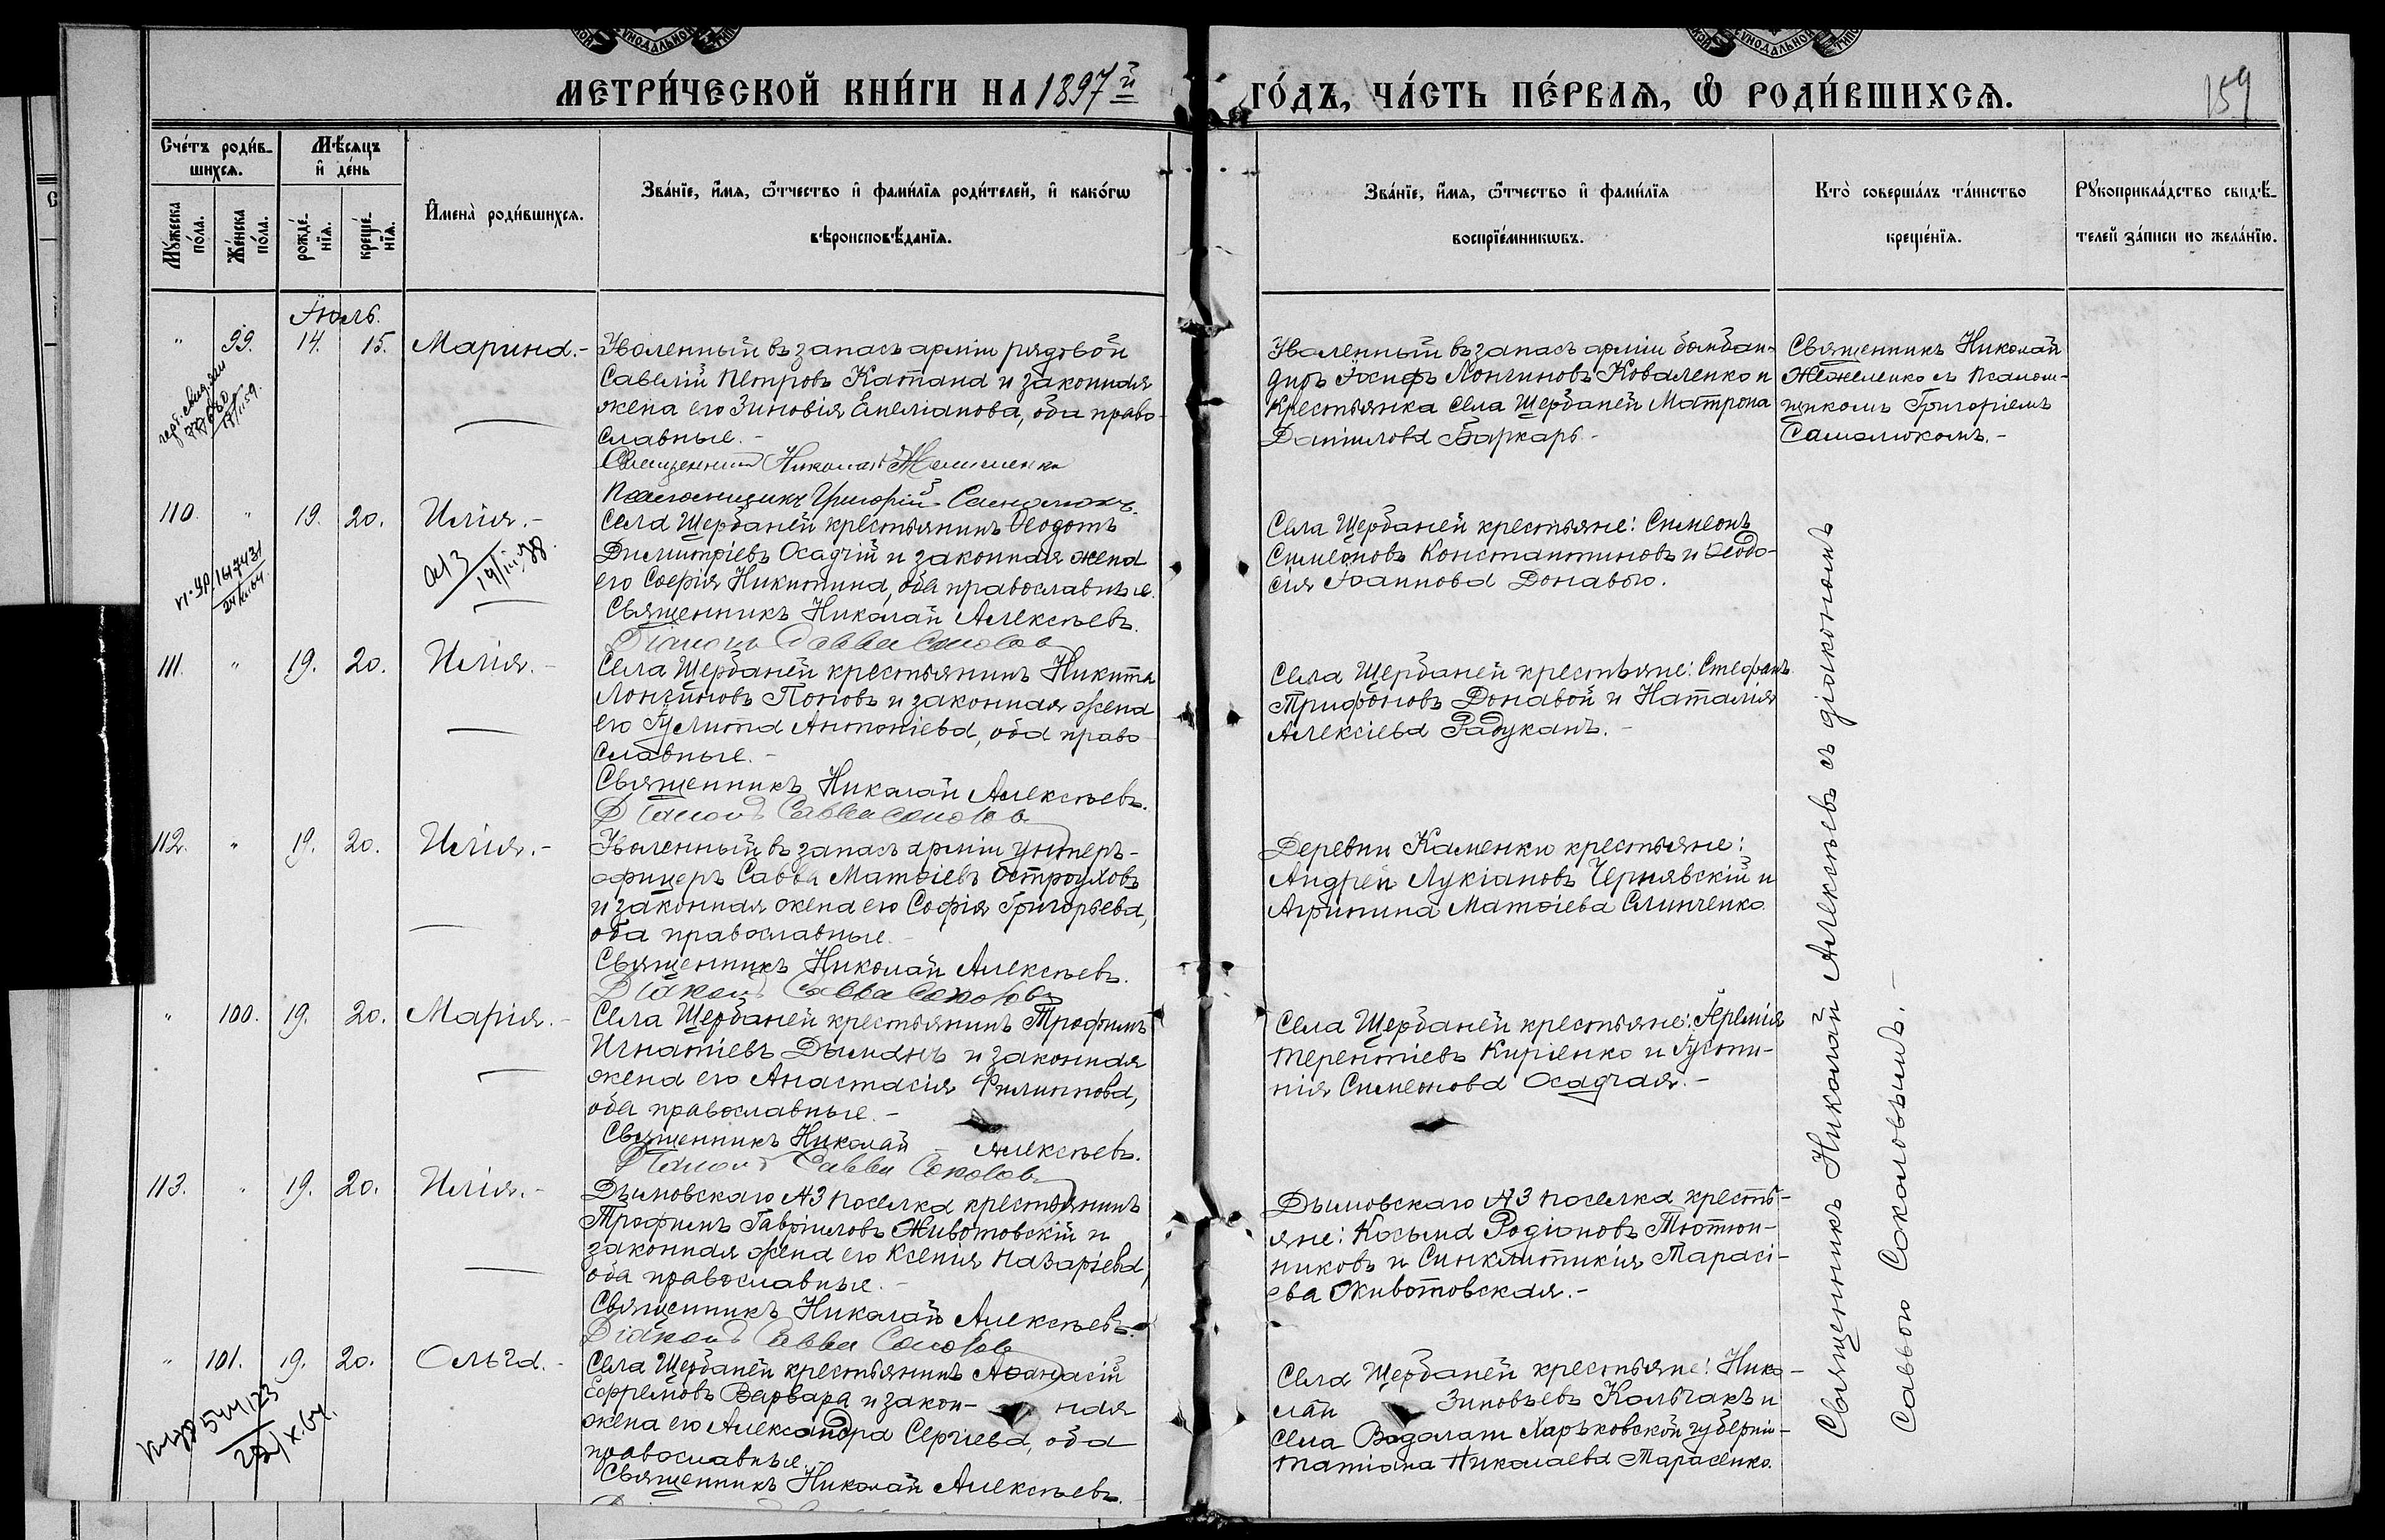 МЕТРИ́ЧЕСКОЙ КНИ́ГИ НА 1897й ГО́ДЪ, ЧА́СТЬ ПЕ́РВАѦ, Ѡ РОДИ́ВШИХСѦ.
159
Сче́тъ роди́в-
шихсѧ.
Мѣ́сѧцъ
и҆ де́нь
Мꙋ́жеска
по́ла.
Же́нска
по́ла.
рожде́-
нїѧ.
креще́-
нїѧ.
И҆мена̀ роди́вшихсѧ.
Зва́нїе, и҆́мѧ, ѻ҆́тчество и҆ фами́лїѧ роди́телей, и҆ како́гѡ
вѣроисповѣ́данїѧ.
Зва́нїе, и҆́мѧ, ѻ҆́тчество и҆ фами́лїѧ
воспрїе́мникѡвъ.
Кто̀ соверша́лъ та́инство
креще́нїѧ.
Рꙋкоприкла́дство свидѣ́-
телей за́писи по жела́нїю.
Іюль.
" 99. 14. 15. Марина.-
Уволенный въ запасъ арміи рядовой
Савелій Петровъ Катана и законная
жена его Зиновія Емеліанова, оба право-
славные.-
Священникъ Николай
Псаломщикъ Григорій Самолюкъ.
Уволенный въ запасъ арміи бомбар-
диръ Іосифъ Лонгиновъ Коваленко и
крестьянка села Щербаней Матрона
Даниилова Баркарь.-
Священникъ Николай
съ псалом-
щикомъ Григоріемъ
Самолюкомъ.-
110. " 19. 20. Илія.-
Села Щербаней крестьянинъ Ѳеодотъ
Димитріевъ Осадчій и законная жена
его Софія Никитина, оба православные.
Священникъ Николай Алексѣевъ.
Діаконъ Савва Соколовъ
Села Щербаней крестьяне: Симеонъ
Симеоновъ Константиновъ и Ѳеодо-
сія Іоаннова Донавою.
111. " 19. 20. Илія.-
Села Щербаней крестьянинъ Никита
Лонгиновъ Поповъ и законная жена
его Іулита Антоніева, оба право-
славные.-
Священникъ Николай Алексѣевъ.
Діаконъ Савва Соколовъ
Села Щербаней крестьяне: Стефанъ
Трифоновъ Донавой и Наталія
Алексіева Радуканъ.-
112. " 19. 20. Илія.-
Уволенный въ запасъ арміи унтеръ-
офицеръ Савва Матѳіевъ Остроуховъ
и законная жена его Софія Григорьева,
оба православные.-
Священникъ Николай Алексѣевъ.
Діаконъ Савва Соколовъ
Деревни Каменки крестьяне:
Андрей Лукіановъ Чернявскій и
Агрипина Матѳіева Слинченко
" 100. 19. 20. Марія.-
Села Щербаней крестьянинъ Трофимъ
Игнатіевъ Дыманъ и законная
жена его Анастасія Филиппова,
оба православные.-
Священникъ Николай Алексѣевъ.
Діаконъ Савва Соколовъ
Села Щербаней крестьяне: Іеремія
Терентіевъ Киріенко и Іусти-
нія Симеонова Осадчая.-
113. " 19. 20. Илія.-
Дымовскаго №3 поселка крестьянинъ
Трофимъ Гавріиловъ Животовскій и
законная жена его Ксенія Назаріева,
оба православные.-
Священникъ Николай Алексѣевъ.
Діаконъ Савва Соколовъ
Дымовскаго №3 поселка кресть-
яне: Косьма Родіоновъ Тютюн-
никовъ и Синклитикія Тарасі-
ева Животовская.-
" 101. 19. 20. Ольга.-
Села Щербаней крестьянинъ Аѳанасій
Ефремовъ Варвара и закон- ная
жена его Александра Сергіева, оба
православные.
Священникъ Николай Алексѣевъ.
Села Щербаней крестьяне: Нико-
лай Зиновьевъ Колчакъ и
села Водолаги Харьковской губерніи-
Татіана Николаева Тарасенко.
Священникъ Николай Алексѣевъ съ діакономъ
Саввою Соколовымъ.-